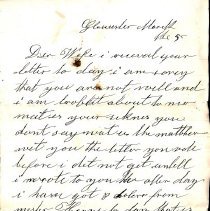 Gloucester March
the 5
Dear Wife i received your
letter to day i am sorey
that you are not well and
i am troubbld about to no
what is your sicknes you
dont say what is the matther
wit you the letter you rote
before i did not get untill
i wrote to you the after day
i have got 8 dolors from